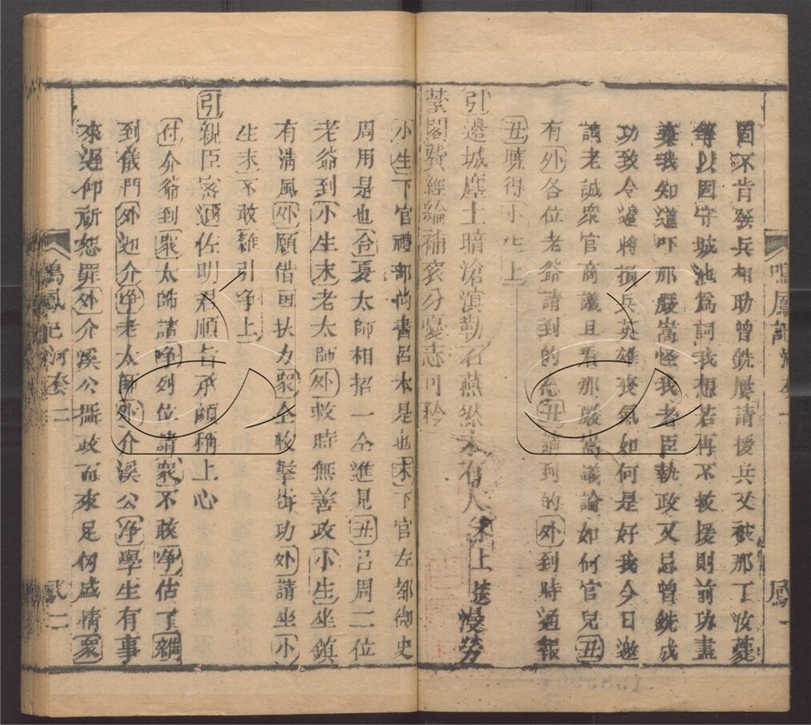 固不肯發兵相助曾銑屢請援兵又被那丁汝夔
等以固守城池爲詞我想若再不救援則前功盡
棄我知道吓那嚴嵩怪我老臣執政又忌曾銑成
功致令邊將損兵英雄喪氣如何是好我今日邀
請老誠衆官商議且看那嚴嵩議論如何官兒丑
有外各位老爺請到的丑請到的外到時通報
丑曉得小生上
引邊城塵土暗滄溟勒石燕然未有人末上漫勞
臺閣費經綸補袞分憂志可矜
小生下官禮部尚書呂本是也末下官左都御史
周用是也合夏太師相招一仝進見丑呂周二位
老爺到小生末老太師外救時無善政小生坐鎮
有清風外願借回扶力衆仝收擊衛功外請坐小
生末不敢雜引净上
引親臣密邇佐明君順旨承顔稱上心
付介爺到衆太師請净列位請衆不敢净估了雜
到儀門外迎介净老太師外介溪公净學生有事
來遲仰祈恕罪外介溪公攝政而來足仞盛情衆
鳴鳳記 河套 一 鳳一
鳴鳳記 河套 二 鳳二